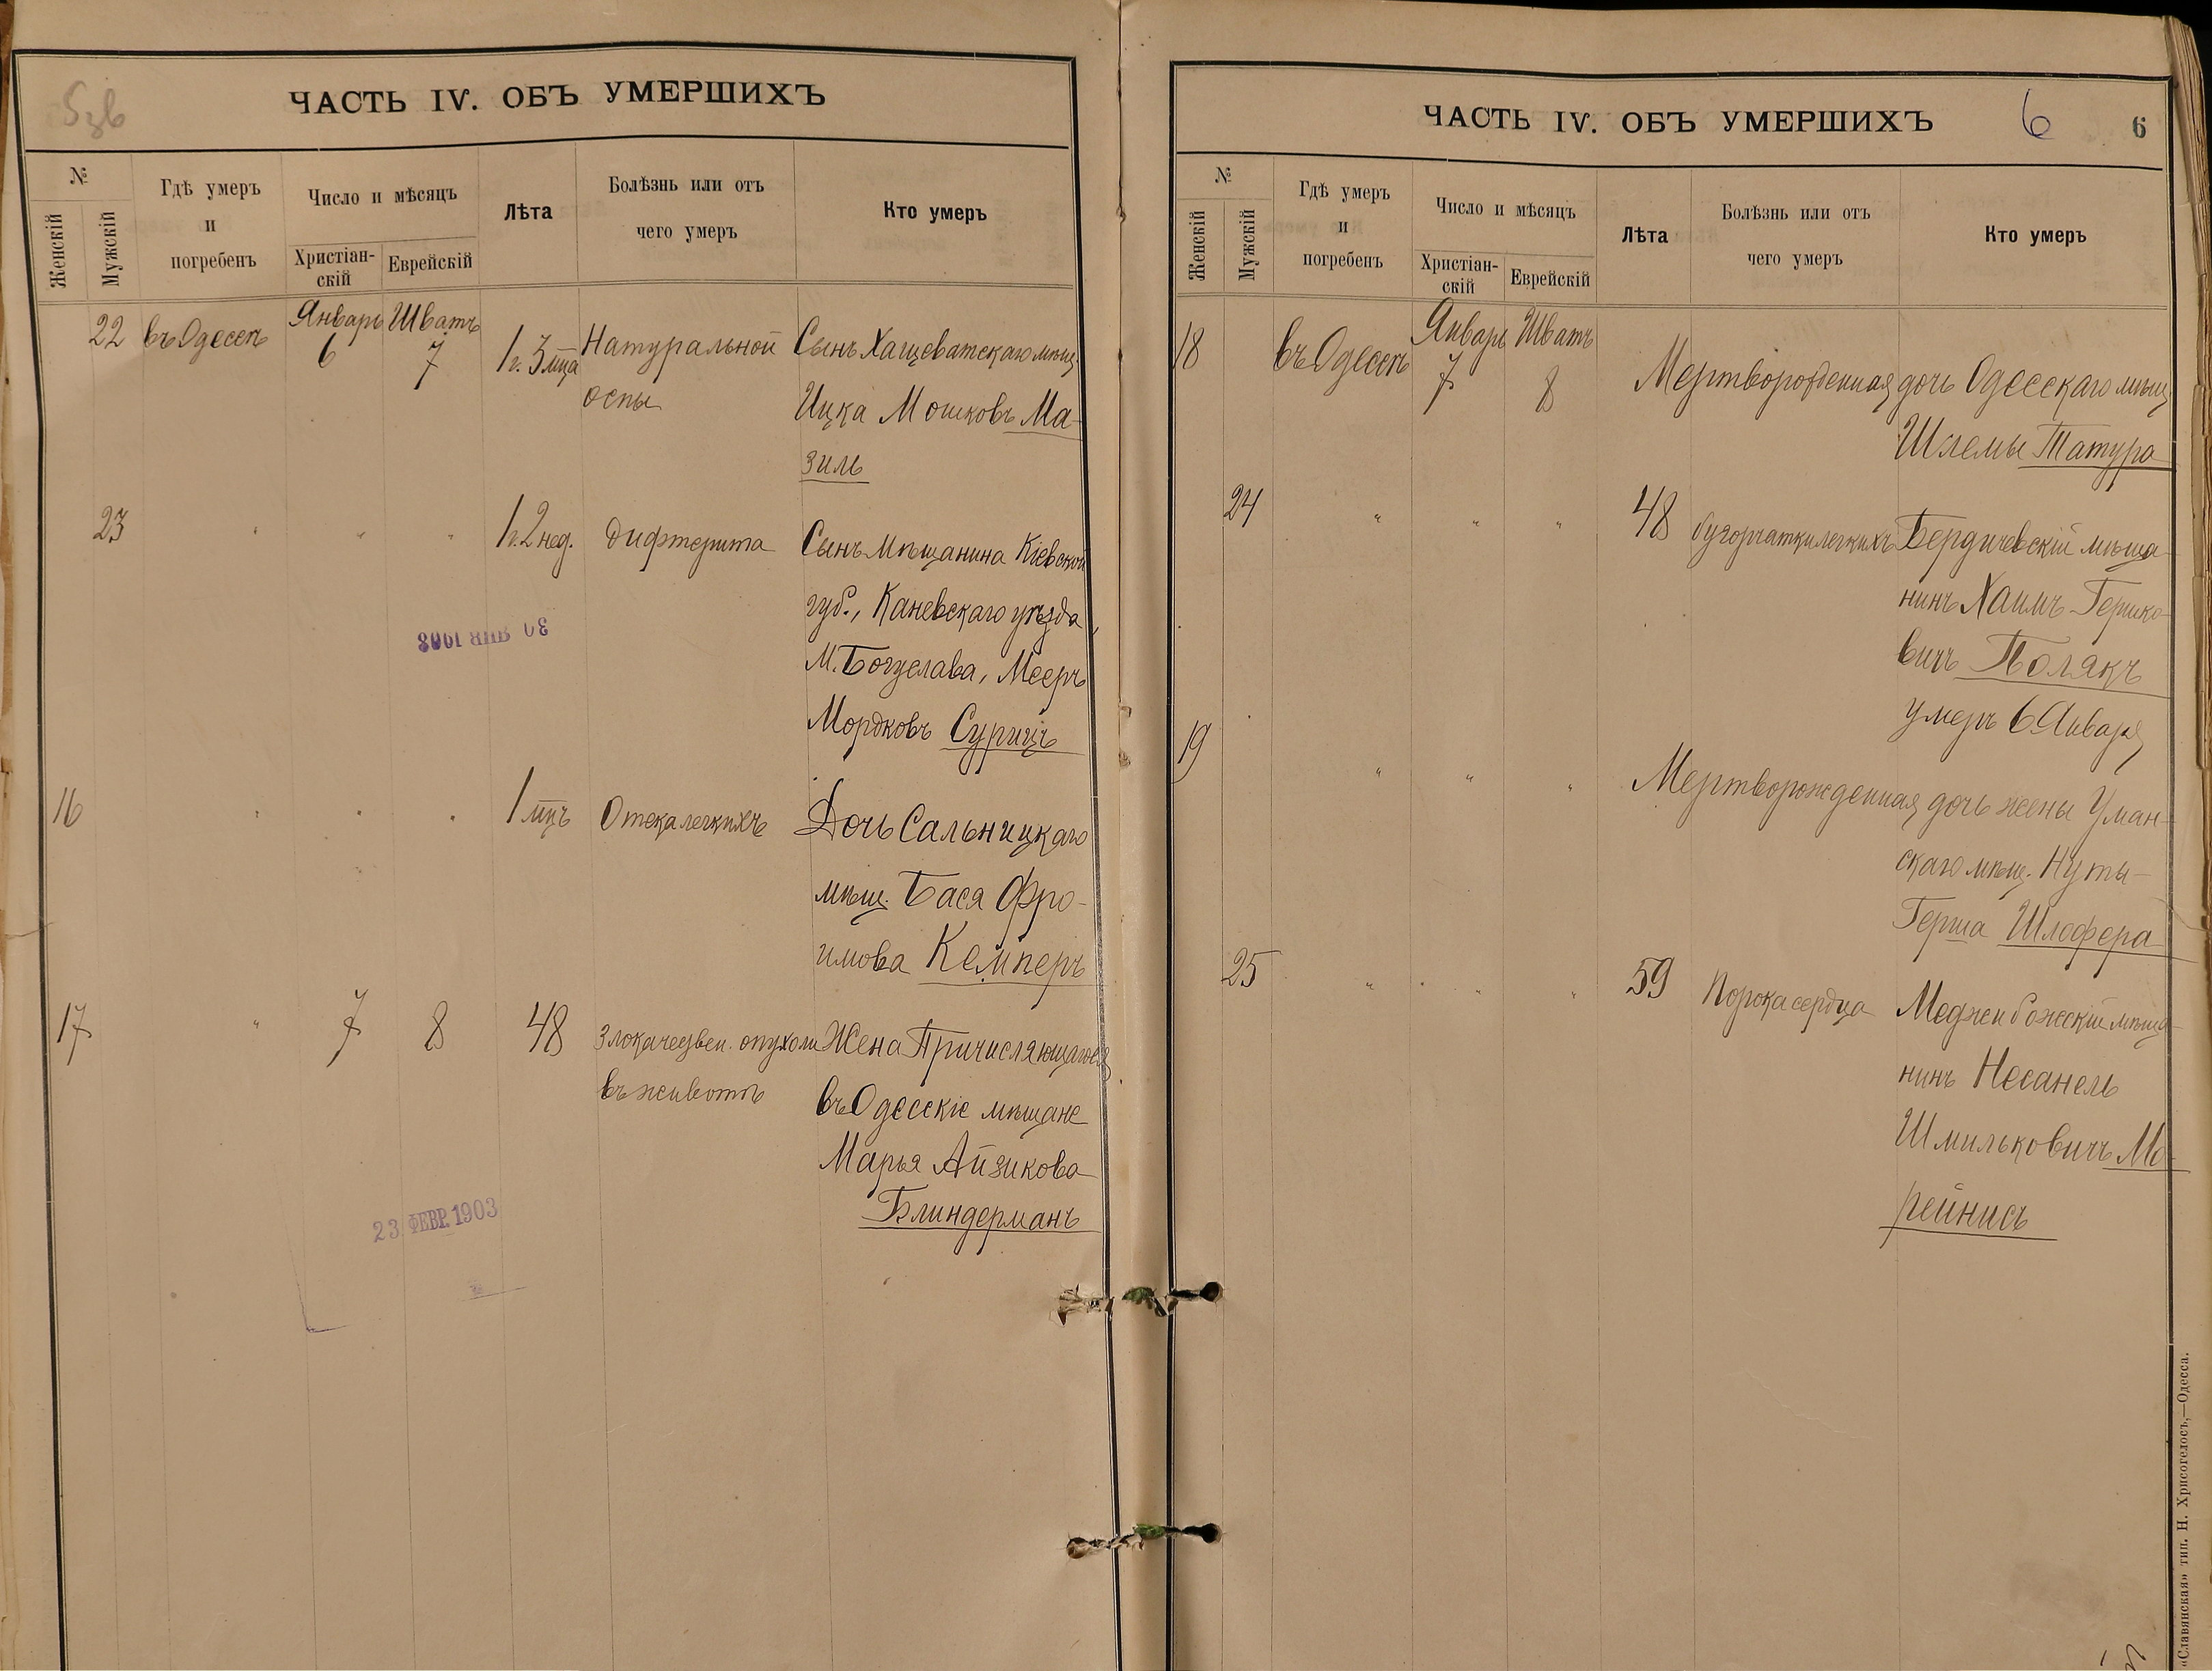 5зв
ЧАСТЬ IV. ОБЪ УМЕРШИХЪ
№
Женскій
Мужскій
Гдѣ умеръ
и
погребенъ
Число и мѣсяцъ
Христіан-
скій
Еврейскій
Лѣта
Болѣзнь или отъ
чего умеръ
Кто умеръ
22 въ Одессѣ Январь 6 Шватъ 7 1 г. 3 мца Натуральной Сынъ Хащеватскаго мѣщ.
оспы Ицка Мошковъ Ма-
зиль
23 " " " 1 г. 2 нед. Дифтерита Сынъ Мѣщанина Кіевской
губ., Каневскаго уѣзда,
М. Богуслава, Мееръ
Мордковъ Сурицъ
30 ЯНВ 1903
16 " " " 1 мцъ Отека легкихъ Дочь Сальницкаго
мѣщ. Бася Фро-
имова Кемперъ
17 " 7 8 48 Злокачествен. опухоли Жена Причисляющагося
въ животѣ въ Одесскіе мѣщане
Марья Айзикова
Блиндерманъ
23 ФЕВР. 1903
ЧАСТЬ IV. ОБЪ УМЕРШИХЪ
6
6
№
Женскій
Мужскій
Гдѣ умеръ
и
погребенъ
Число и мѣсяцъ
Христіан-
скій
Еврейскій
Лѣта
Болѣзнь или отъ
чего умеръ
Кто умеръ
18 въ Одессѣ Январь 7 Шватъ 8 Мертворожденная дочь Одесскаго мѣщ.
Шлемы Татура
24 " " " 48 бугорчатки легкихъ Бердичевскій мѣща-
нинъ Хаимъ Гершко-
вичъ Полякъ
умеръ 6 Января
19 " " " Мертворожденная дочь жены Уман-
скаго мѣщ. Нуты-
Герша Шлофера
25 " " " 59 Порока сердца Меджибожскій мѣща-
нинъ Несанель
Шмильковичъ Мо-
рейнисъ
«Славянская» тип. Н. Хрисогелосъ,—Одесса.